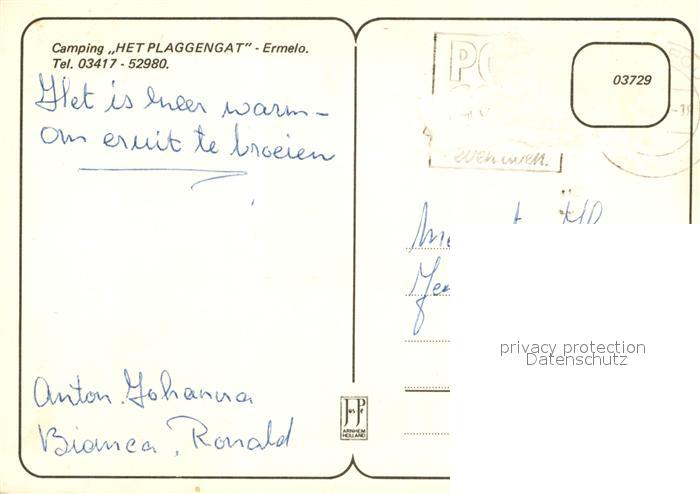 Camping „HET PLAGGENGAT” - Ermelo.
Tel. 03417 - 52980.
Het is weer warm -
om eruit te broeien
Anton. Johanna
Bianca, Ronald
JosPé
ARNHEM
HOLLAND
PO
03729
privacy protection
Datenschutz